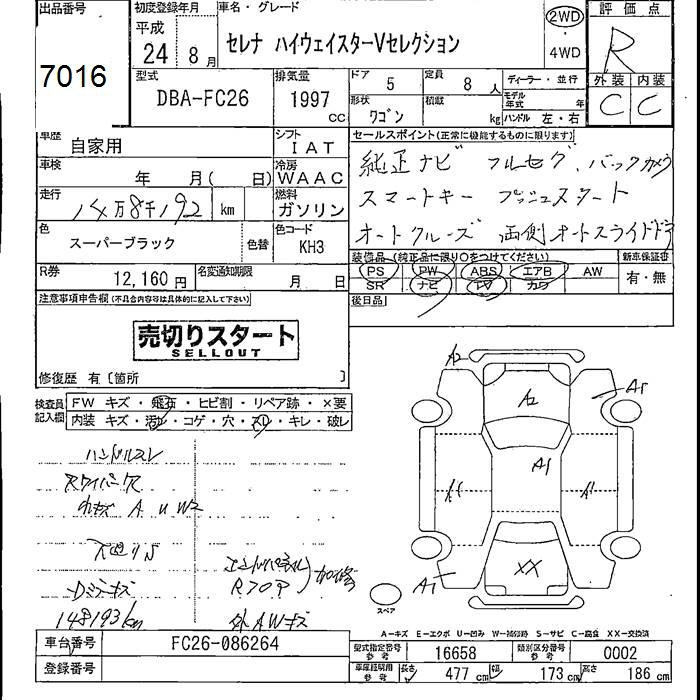 出品番号
7016
初度登録年月
平成
24 8月
車名・グレード
セレナ ハイウェイスターVセレクション
2WD
・
4WD
評価点
R
外装 内装
C C
型式
DBA-FC26
排気量
1997
CC
ドア 5
定員 8 人
形状 ワゴン
積載 kg
ディーラー・並行
モデル年式 年
ハンドル 左・右
車歴 自家用
シフト IAT
車検 年 月( 日)
冷房 WAAC
走行 14万8千192 km
燃料 ガソリン
色 スーパーブラック 色替
色コード KH3
R券 12,160円
名変通知期限 月 日
セールスポイント(正常に機能するものに限ります)
純正ナビ フルセグ、バックカメラ
スマートキー プッシュスタート
オートクルーズ 両側オートスライドドア
装備品(純正品に限り○をつけてください)
PS PW ABS エアB AW
SR ナビ TV カワ
新車保証書
有・無
後日品
注意事項申告欄(不具合内容等は具体的に記入して下さい)
売切りスタート
SELLOUT
修復歴 有〔箇所 〕
検査員記入欄
FW キズ・飛石・ヒビ割・リペア跡・×要
内装 キズ・汚レ・コゲ・穴・スレ・キレ・破レ
ハンドルスレ
Rワイパー欠
A U W2
Dミラーキズ
148193km
エンドパネル
加修
外AWキズ
A2
A1
A2
A1
A1
A1
XX
A1
スペア
A-キズ E-エクボ U-凹み W-補修跡 S-サビ C-腐食 XX-交換済
車台番号 FC26-086264
登録番号
型式指定番号 参考 16658
類別区分番号 参考 0002
車庫証明用 参考 長さ 477 cm 幅 173 cm 高さ 186 cm